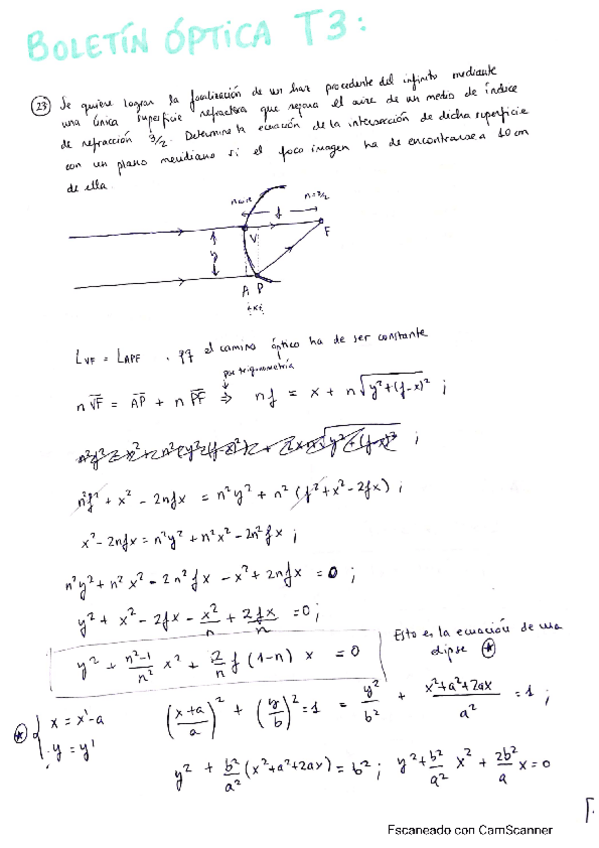 BOLETÍN ÓPTICA T3:
23 Se quiere lograr la focalización de un haz procedente del infinito mediante
una única superficie refractora que separa el aire de un medio de índice
de refracción 3/2. Determine la ecuación de la intersección de dicha superficie
con un plano meridiano si el foco imagen ha de encontrarse a 10 cm
de ella.
n=3/2
f
V
F
y
A P
x
L_VF = L_APF . pq el camino óptico ha de ser constante
por trigonometría
n VF = AP + n PF ⇒ nf = x + n√(y²+(f-x)²) ;
n²f² + x² - 2nfx = n²y² + n² (f²+x²-2fx) ;
x² - 2nfx = n²y² + n²x² - 2n²fx ;
n²y² + n²x² - 2n²fx - x² + 2nfx = 0 ;
y² + x² - 2fx - x²/n + 2fx/n = 0 ;
y² + (n²-1)/n² x² + 2/n f (1-n) x = 0
Esto es la ecuación de una
elipse *
* { x = x' - a
y = y'
((x+a)/a)² + (y/b)² = 1 = y²/b² + (x²+a²+2ax)/a² = 1 ;
y² + b²/a² (x²+a²+2ax) = b² ; y² + b²/a² x² + 2b²/a x = 0
Escaneado con CamScanner